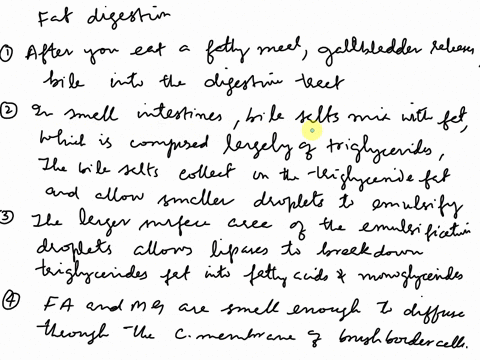 Fat digestion
① After you eat a fatty meal, gallbladder releases
bile into the digestive tract
② In small intestines, bile salts mix with fat,
which is composed largely of triglycerides,
The bile salts collect on the triglyceride fat
and allow smaller droplets to emulsify
③ The larger surface area of the emulsification
droplets allows lipases to breakdown
triglycerides fat into fatty acids & monoglycerides
④ FA and MG are small enough to diffuse
through the c. membrane of brush border cells.